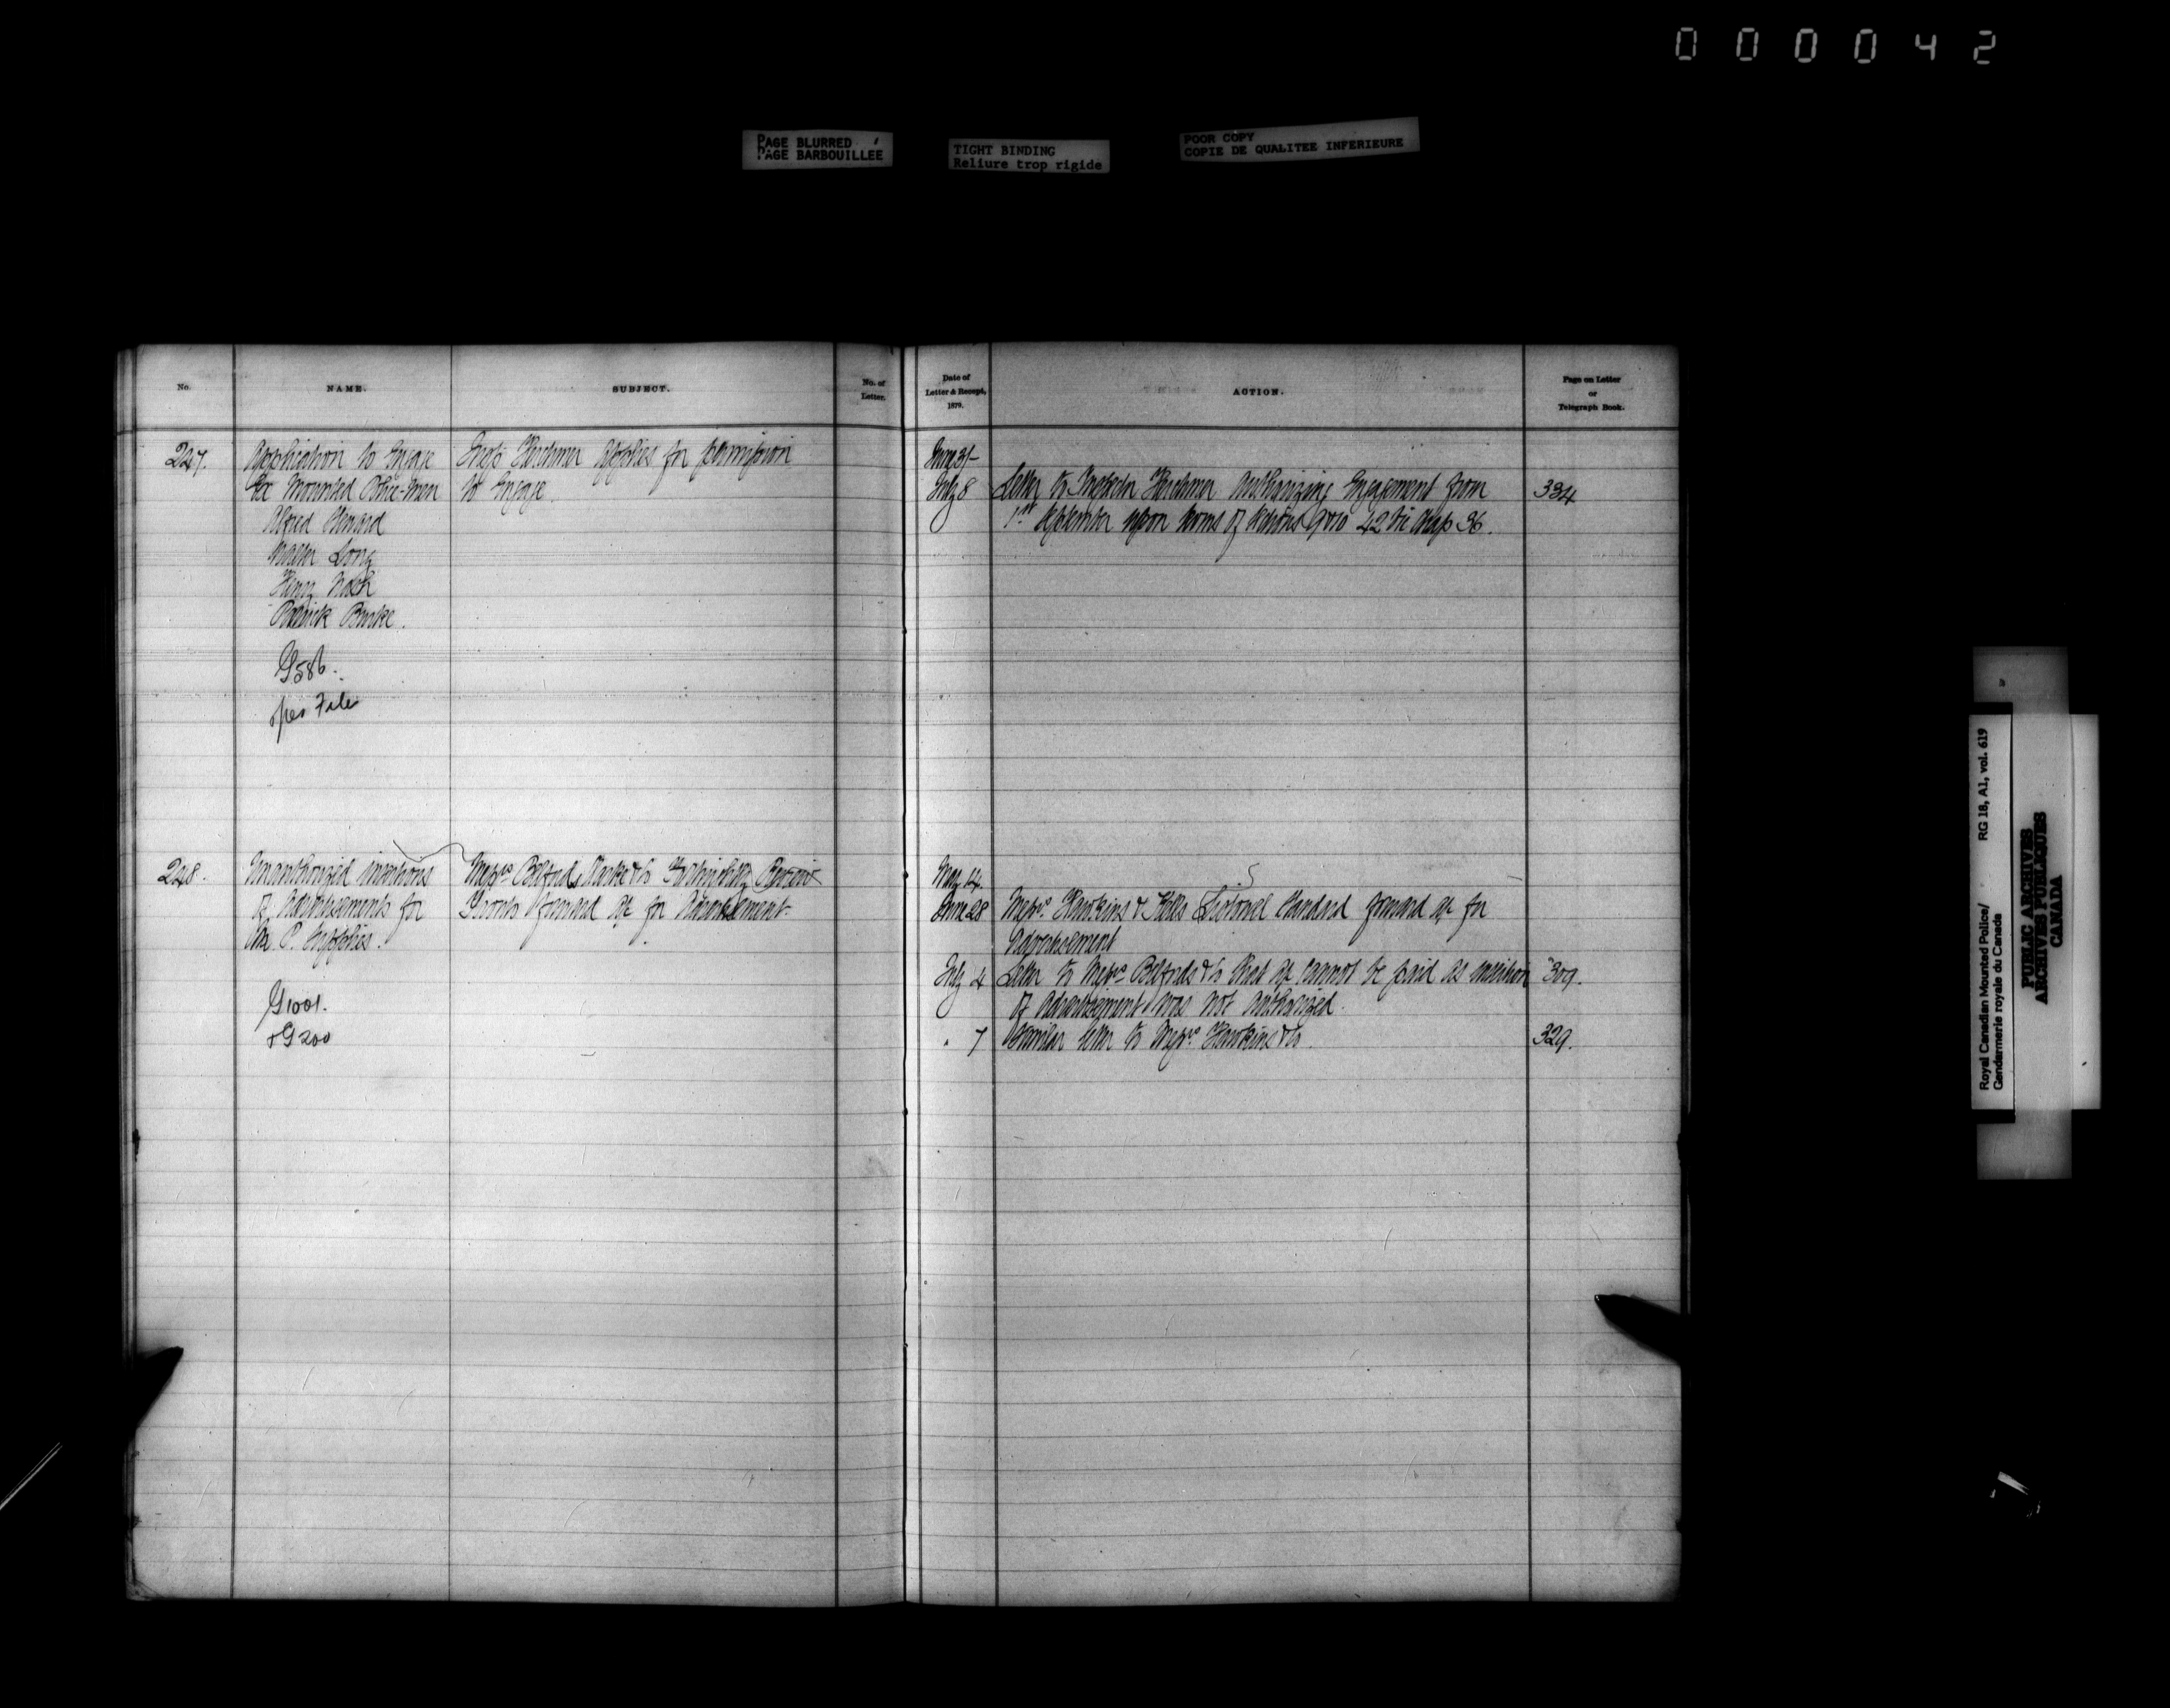 000042
PAGE BLURRED
PAGE BARBOUILLEE
TIGHT BINDING
Reliure trop rigide
POOR COPY
COPIE DE QUALITEE INFERIEURE
No.
NAME.
SUBJECT.
No. of
Letter.
Date of
Letter & Receipt,
1879.
ACTION.
Page on Letter
or
Telegraph Book.
247.
Application to Engage
Ex Mounted Police-Men
Alfred
Walter Long
Henry Nash
Patrick Burke.
G586.
per File
Insp. Herchmer applies for permission
to Engage.
June 3/-
July 8
Letter to Inspector Herchmer authorizing Engagement from
1st September upon terms of 42 Vic Chap 36.
334
248.
Unauthorized insertions
of Advertisements for
M. P. Supplies.
G1001.
+G200
Messrs Belfords Clarke & Co Review
Toronto forward a/c for Advertisement.
May 14.
June 28
Messrs. Hawkins & Kells Listowel Standard forward a/c for
Advertisement
July 4
Letter to Messrs Belfords & Co that a/c cannot be paid as insertion
of Advertisement was not authorized.
309.
" 7
Similar letter to Messrs. Hawkins & Co.
329.
Royal Canadian Mounted Police/
Gendarmerie royale du Canada
RG 18, A1, vol. 619
PUBLIC ARCHIVES
ARCHIVES PUBLIQUES
CANADA